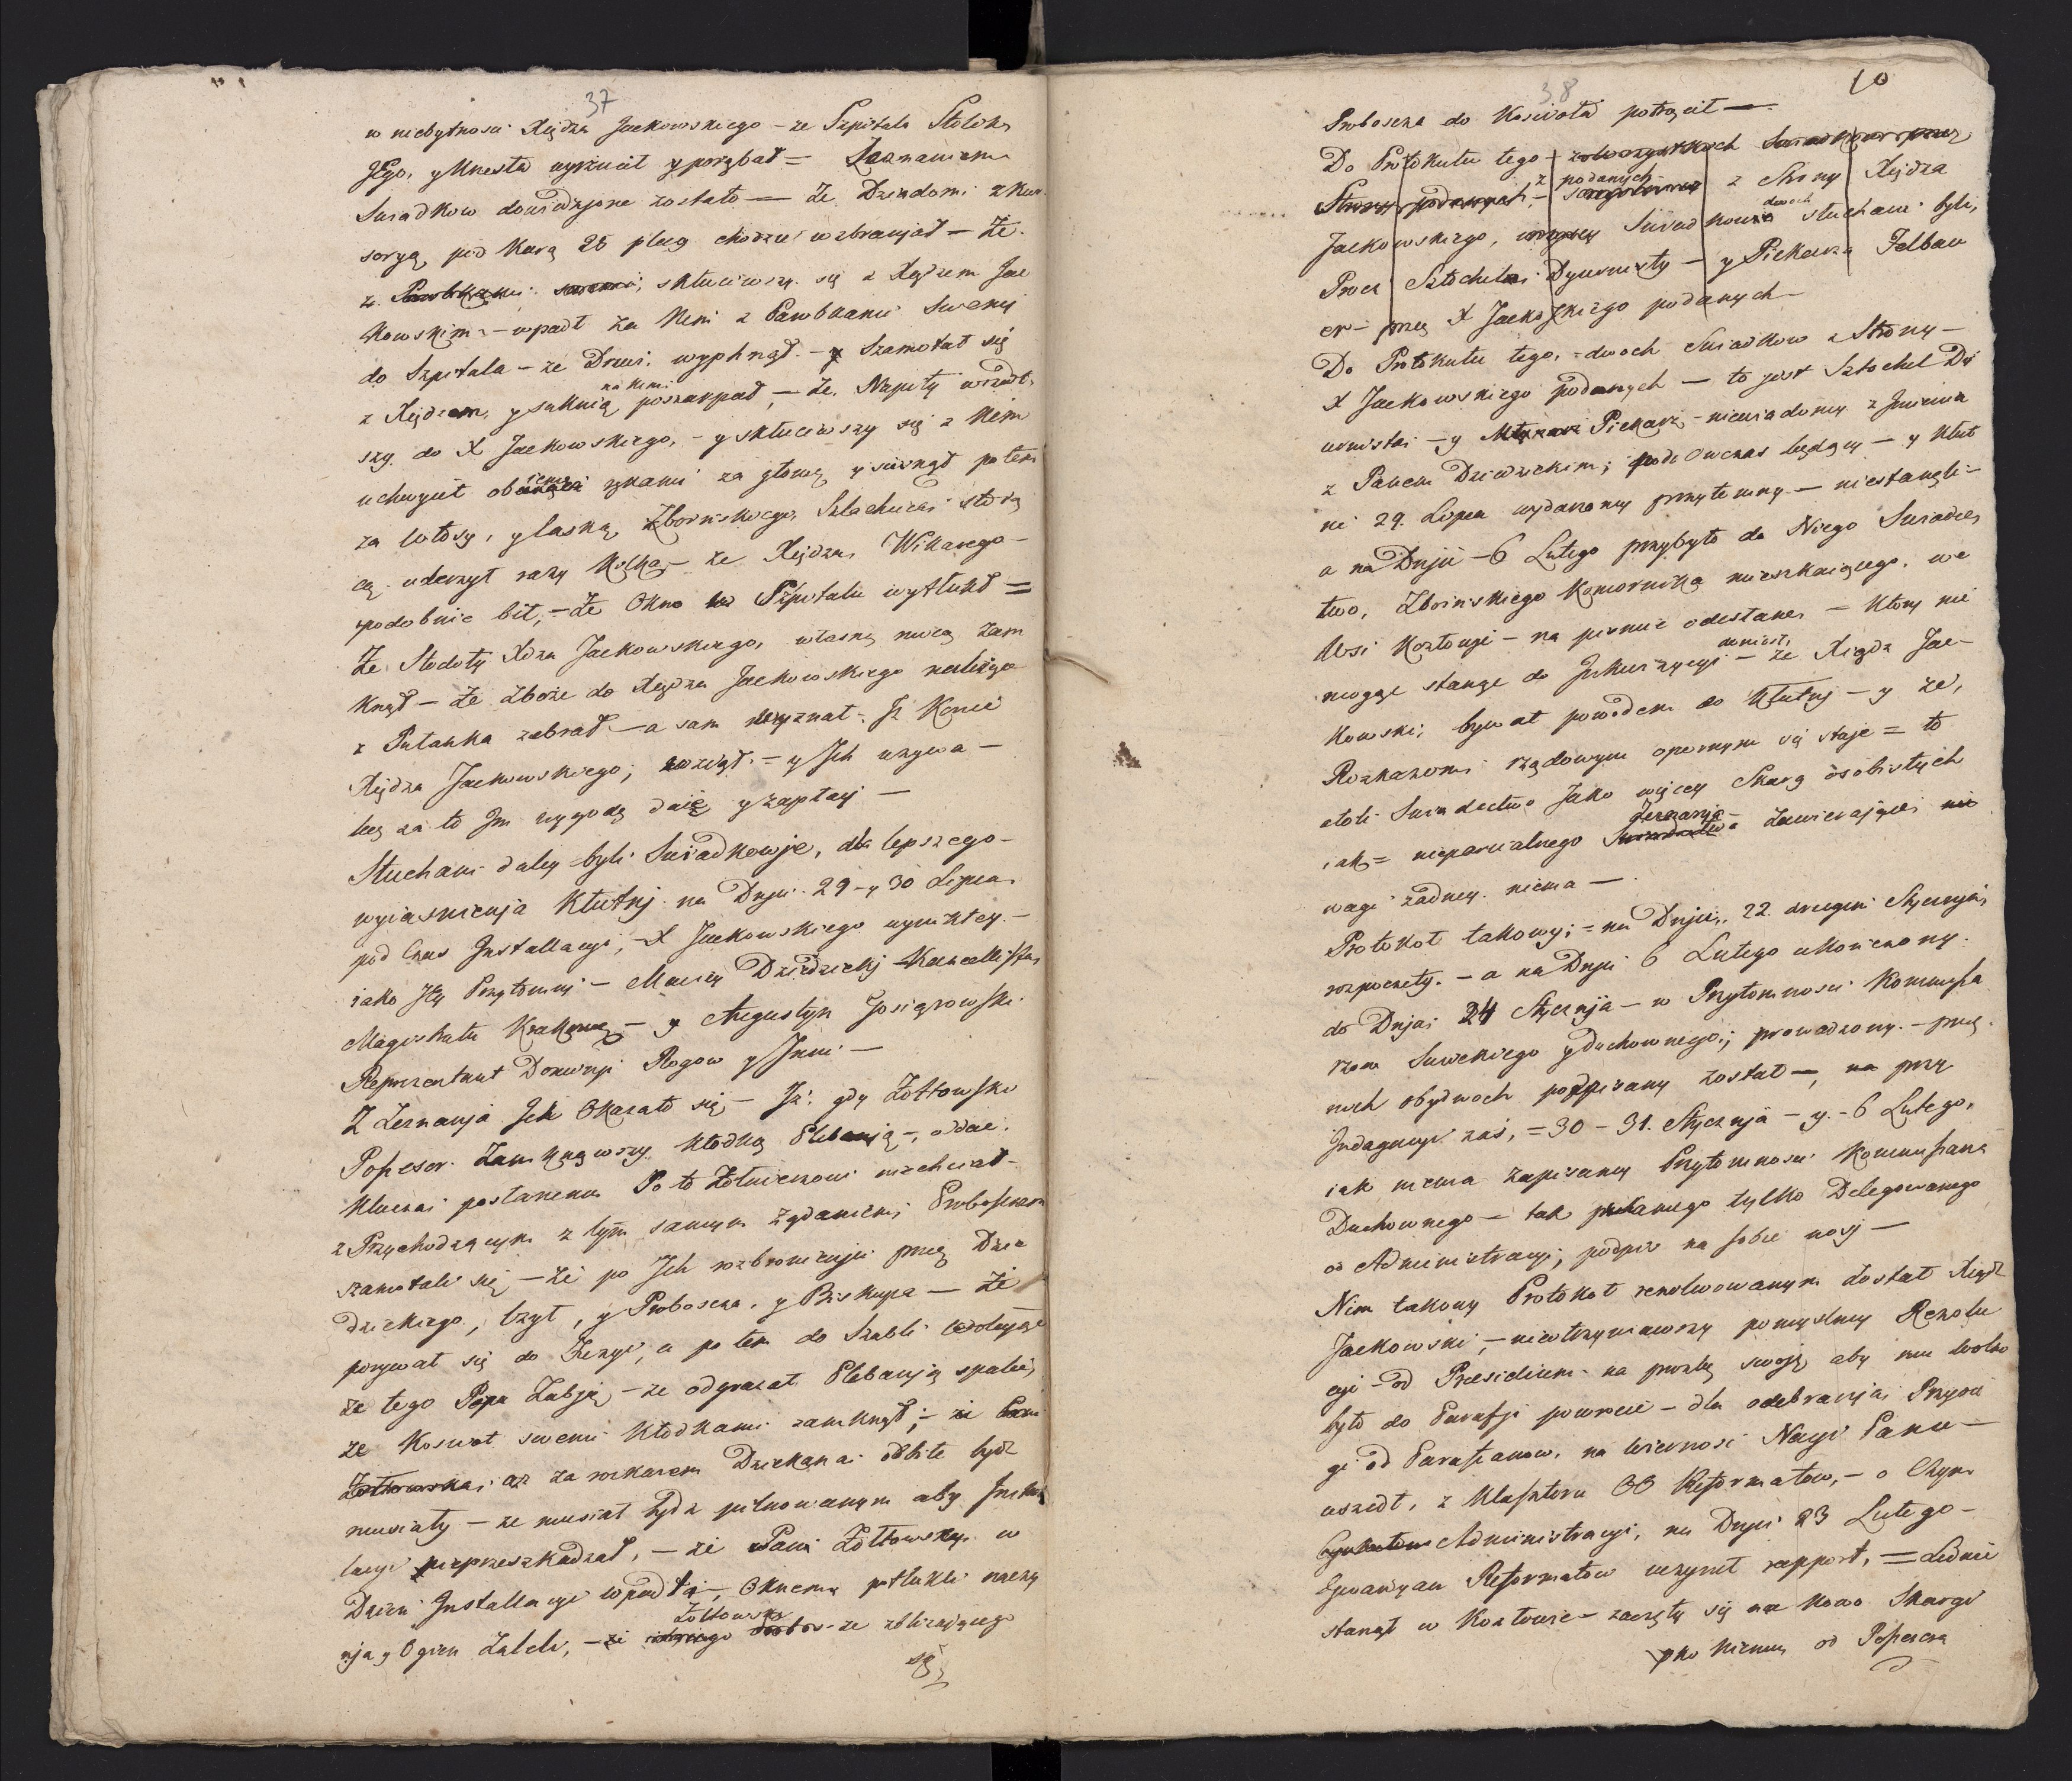 37
w niebytnosci Xiędza Jackowskiego – ze Szpitala Stolik
Jego, y Krzesła wyrzucił y porąbał = Zeznaniem
Swiadkow dowiedzione zostało — Ze Dziadomi z Kwe
soryą pod Karą 25 plag chodzić wzbraniał – Ze
z Parobkami swemi, skłuciwszy się z Xiędzem Jac
kowskim – wpadł za Nim z Parobkami Swemi
do Szpitala – ze Drwi wypchnął – y Szamotał się
z Xiędzem, y suknią na Nim poszarpał, – Ze Napity wszedł
szy do X Jackowskiego, – y skłuciwszy się z Nim
uchwycił obiema rękami za głowę y scisnął potem
za włosy, y laską Zboinskiego Szlachcica stoią
cą uderzył razy Kilka – ze Xiędza Wikarego –
podobnie bił, – Ze Okno w Szpitalu wytłukł =
Ze Stodoły Xdza Jackowskiego, własną mocą Zam
knął – Ze Zboże do Xiędza Jackowskiego należące
z Putanka zabrał – a sam wyznał – Iż Konie
Xiędza Jackowskiego, wziął – y Ich uzywa –
lecz za to Im wygodę daie y zapłaci —
Słuchani daley byli Swiadkowie, dla lepszego –
wyiasnienia Kłutni na Dniu 29 – y 30 Lipca
pod Czas Installacyi, – X Jackowskiego wynikłey –
iako Jey Przytomni – Maciey Dziedzicki Kancellista
Magistratu Krakowa – y Augustyn Gosiąrowski
Reprezentant Dominii Rogow y Inni —
Z Zeznania Ich Okazało się – Iż gdy Żołtowski
Popesor Zamknąwszy Kłodką Plebanią –, oddać
Klucza posłanemu Po to Żołnierzowi niechciał –
z Przychodzącym z tym samym Żądaniem, Proboszczem
szamotali się – że po Ich rozbronieniu przez Dzie
dzickiego, lżył, y Proboszcza, y Biskupa — że
porywał się do Fuzyi, a potem do Szabli wołaiąc
że tego Popa Zabiją – ze odgrażał Plebanią spalić
ze Kosciot swemi Kłodkami zamknął; – że
aż za rozkazem Dziekana odbite bydź
musiały – ze musiał bydź pilnowanym aby Instal
lacyi nieprzeszkadzał, – że Pani Żołtowska w
Dzień Installacyi wpadła –, Okna potłukli naczy
nia y Ogien Zaleli, – że Żołtowski – ze zbliżającego
się

38
10
Proboszcza do Kosciota potrącił —
Do Protokułu tego – Swiadkow przez
Strony podanych – z podanych z Strony Xiędza
Jackowskiego, Swiadkow dwoch słuchani byli,
Procz Sztochela Dyurnisty – y Piekarza Felbau
er – przez X Jackowskiego podanych –
Do Protokułu tego, – dwoch Swiadkow z Strony –
X Jackowskiego podanych — to jest Sztochel Dy
urnista – y Piekarz – niewiadomy z Imienia
z Panem Dziedzickim, podowczas będący – y Kłut
ni 29. Lipca wydarzoney przytomny — niestanęli –
a na Dniu – 6 Lutego przybyło do Niego Swiadec
two, Zboinskiego Komornika mieszkaiącego, we
Wsi Kozłowye – na pismie odesłane, – Ktory nie
mogąc stanąć do Inkwizycyi – doniosł, ze Xiądz Jac –
kowski, bywał powodem do Kłutni – y ze,
Rozkazomi rządowym opornym się staje = to
atoli Swiadectwo Jako więcey Skarg osobistych
iak = nieparcialnego Zeznania – Zawieraiące
wagi żadney niema —
Protokoł takowy, = na Dniu 22 drugim Stycznia
rozpoczęty. – a na Dniu 6 Lutego ukonczony.
do Dnia 24 Stycznia – w Przytomnosci Kommissa
rzow Swieckiego y Duchownego; prowadzony – przez
nich obydwoch podpisany został —, przy
Indagacyi zas, = 30 – 31. Stycznia – y – 6 Lutego,
iak niema zapisaney Przytomnosci Kommissarza
Duchownego – tak samego tylko Delegowanego
od Administracyi, podpis na sobie nosi —
Nim takowy Protokoł rezolwowanym został Xiądz
Jackowski, – nieotrzymawszy pomyslney Rezolu
cyi – od Praesidium – na prozbę swoją aby mu wolno
było do Parafji powrocić – dla odebrania Przysię
gi od Parafianow, na wiernosć Nayi Panu –
uszedł, z Klasztoru OO Reformatow, – o Czym
Administracyi, na Dniu 23 Lutego –
Gwardyan Reformatow uczynił rapport, = Ledwie
stanął w Kozłowie – zaczęły się na nowo Skargi
pko Niemu od Popesora